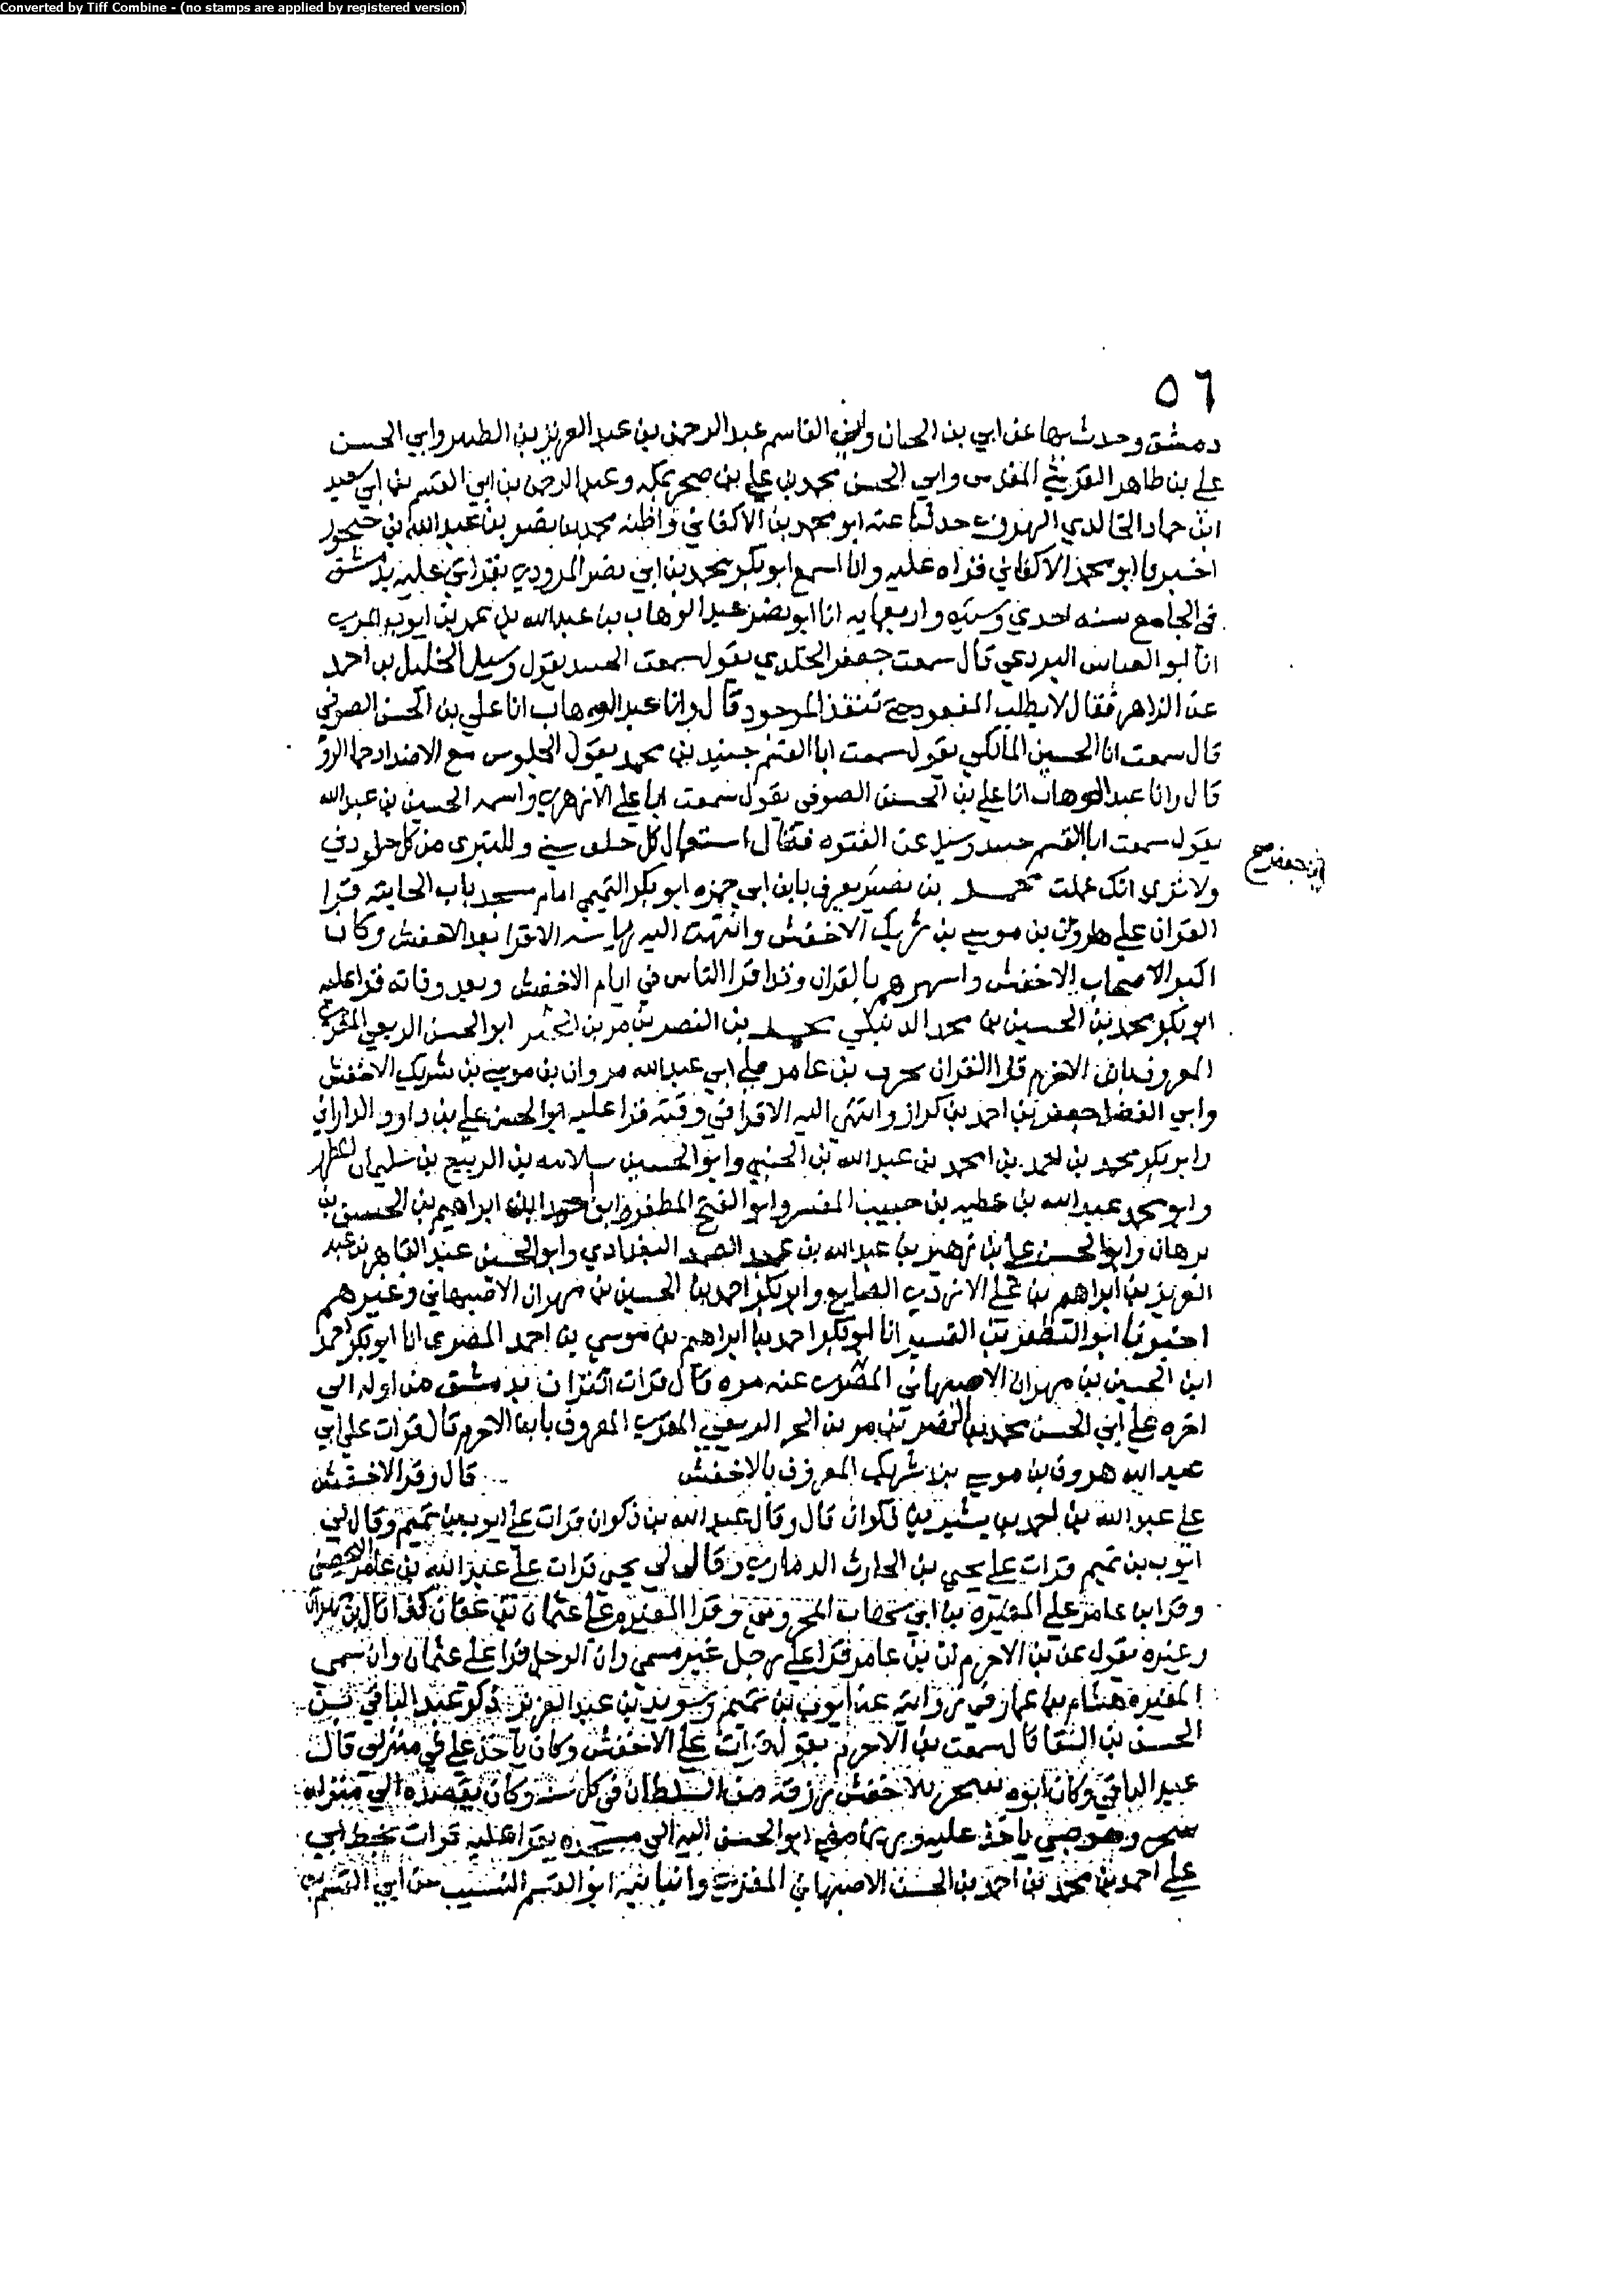 Converted by Tiff Combine - (no stamps are applied by registered version)
٥٦
دمشق وحدث بها عن ابي بن الحبان وابي القاسم عبد الرحمن بن عبد العزيز بن الطبير وابي الحسن
علي بن طاهر القرشي المقدسي وابي الحسن محمد بن علي بن صخر بمكه وعبد الرحمن بن ابي القسم بن ابي سعيد
ابن حماد الخالدي الهروي حدثنا عنه ابو محمد بن الاكفاني واظنه محمد بن نصر بن عبد الله بن
اخبرنا ابو محمد الاكفاني قراه عليه وانا اسمع ابو بكر محمد بن ابي نصر المرودي بقراتي عليه بدمشق
في الجامع سنه احدي وستين واربعمايه انا ابو نصر عبد الوهاب بن عبد الله بن عمر بن ايوب المري
انا ابو العباس البردعي قال سمعت جعفر الخلدي يقول سمعت الجنيد يقول وسيل الخليل بن احمد
عن الزاهد فقال لا يطلب المفقود حتي تفقد الموجود قال وانا عبد الوهاب انا علي بن الحسن الصوفي
قال سمعت ابا الحسين المالكي يقول سمعت ابا القسم جنيد بن محمد يقول الجلوس مع الاضداد حما الروح
قال وانا عبد الوهاب انا علي بن الحسن الصوفي يقول سمعت ابا علي الازهري واسمه الحسين بن عبد الله
يقول سمعت ابا القسم جنيد وسيل عن الفتوه فقال استعمال كل خلق سني والتبري من كل خلق دني
ولا تري انك عملت محمد بن نصير يعرف بابن ابي حمزه ابو بكر التميمي امام مسجد باب الجابيه قرا
ابن جعفر صح
القران علي هارون بن موسي بن شريك الاخفش وانتهت اليه رياسه الاقرا بعد الاخفش وكان
اكبر الاصحاب الاخفش واشهرهم بالقران وقد اقرا الناس في ايام الاخفش وبعد وفاته قرا عليه
ابو بكر محمد بن الحسين بن محمد الدنبلي محمد بن النضر بن مر بن الحر ابو الحسن الربعي المقري
المعروف بابن الاخرم قرا القران بحرف بن عامر علي ابي عبد الله هروان بن موسي بن شريك الاخفش
وابي الفضل جعفر بن احمد بن كراز وانتهي اليه الاقرا في وقته قرا عليه ابو الحسن علي بن داود الداراني
وابو بكر محمد بن احمد بن احمد بن عبد الله بن الجبني وابو الحسين سلامه بن الربيع بن سليمان المطرز
وابو محمد عبد الله بن عطيه بن حبيب المفسر وابو الفتح المظفر بن احمد بن ابراهيم بن الحسن بن
برهان وابو الحسن علي بن زهير بن عبد الله بن عبد الصمد البغدادي وابو الحسن عبد القاهر بن عبد
العزيز بن ابراهيم بن علي الازدي الصايغ وابو بكر احمد بن الحسين بن مهران الاصبهاني وغيرهم
اخبرنا ابو المظفر بن القشيري انا ابو بكر احمد بن ابراهيم بن موسي بن احمد المقري انا ابو بكر احمد
ابن الحسين بن مهران الاصبهاني المقري عنه مره قال قرات القران بدمشق من اوله الي
اخره علي ابي الحسن محمد بن النضر بن مر بن الحر الربعي المقري المعروف بابن الاخرم قال قرات علي ابي
عبد الله هرون بن موسي بن شريك المعروف بالاخفش قال وقرا الاخفش
علي عبد الله بن احمد بن بشير بن ذكوان قال وقال عبد الله بن ذكوان قرات علي ايوب بن تميم وقال لي
ايوب بن تميم قرات علي يحيي بن الحارث الذماري وقال لي يحيي قرات علي عبد الله بن عامر اليحصبي
وقرا ابن عامر علي المغيره بن ابي شهاب المخزومي وقرا المغيره علي عثمان بن عفان كذا قال بن مهران
وغيره يقول عن بن الاخرم ان بن عامر قرا علي رجل غير مسمي وان الرجل قرا علي عثمان وان سمي
المغيره هشام بن عمار في روايته عن ايوب بن تميم وسويد بن عبد العزيز ذكر عبد الباقي بن
الحسن بن السقا قال سمعت بن الاخرم يقول قرات علي الاخفش وكان ياخذ علي في منزلي قال
عبد الباقي وكان ابوه للاخفش رزقه من السلطان في كل سنه وكان يقصده الي منزله
وهو صبي ياخذ عليه وربما مضي ابو الحسن اليه الي مسجده يقرا عليه قرات بخط ابي
علي احمد بن محمد بن احمد بن الحسن الاصبهاني المقري وانبانيه ابو القسم النسيب عن ابي القسم بن